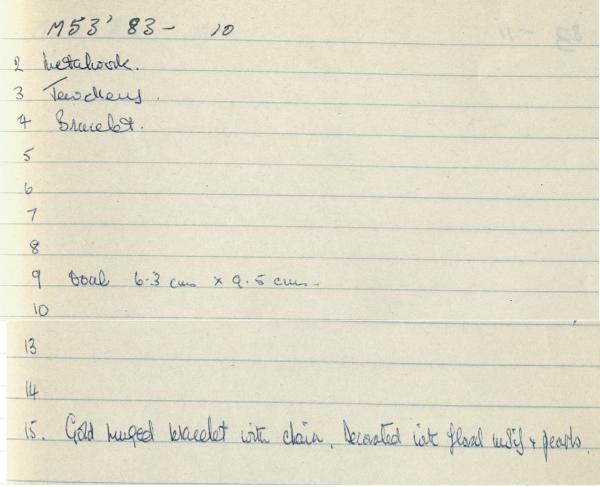 M53' 83- 10
2 Metalwork.
3 Jewellery.
4 Bracelet.
5
6
7
8
9 Oval 6.3 cms × 9.5 cms.
10
13
14
15. Gold hinged bracelet with chain. Decorated with floral motif & pearls.